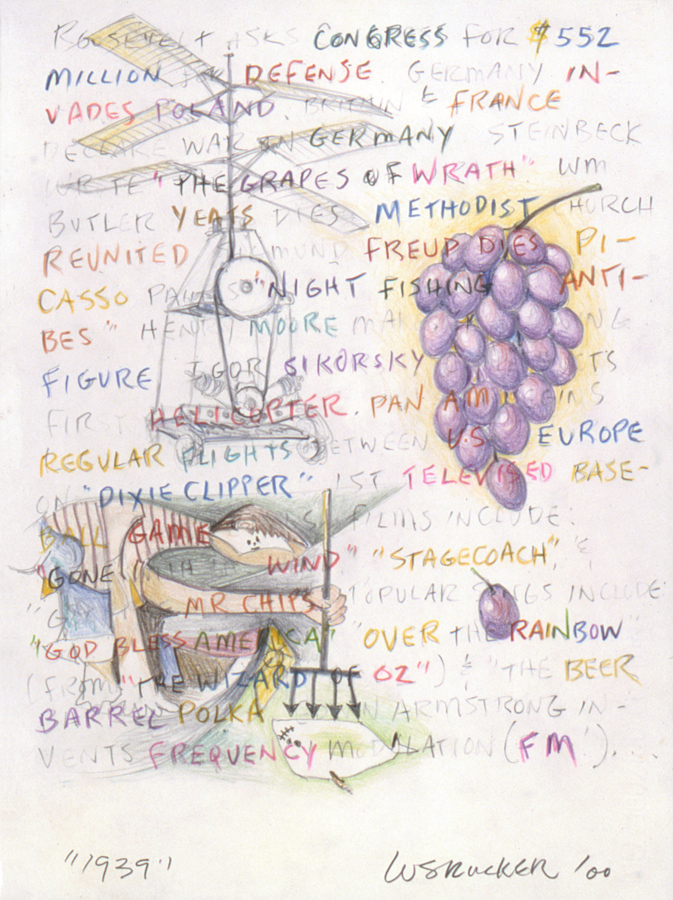 ROOSEVELT ASKS CONGRESS FOR $552
MILLION FOR DEFENSE. GERMANY IN-
VADES POLAND. BRITAIN & FRANCE
DECLARE WAR ON GERMANY. STEINBECK
WRITE "THE GRAPES OF WRATH". WM
BUTLER YEATS DIES METHODIST CHURCH
REUNITED SIGMUND FREUD DIES PI-
CASSO PAINTS "NIGHT FISHING ANTI-
BES" HENRY MOORE
FIGURE IGOR SIKORSKY
FIRST HELICOPTER. PAN AM BEGINS
REGULAR FLIGHTS BETWEEN U.S. EUROPE
ON "DIXIE CLIPPER" 1ST TELEVISED BASE-
BALL GAME FILMS INCLUDE:
"GONE WITH WIND" "STAGECOACH", &
MR CHIPS POPULAR SONGS INCLUDE:
"GOD BLESS AMERICA" "OVER THE RAINBOW"
(FROM "THE WIZARD OF OZ") & "THE BEER
BARREL POLKA ARMSTRONG IN-
VENTS FREQUENCY MODULATION (FM).
"1939"
WSRUCKER '00